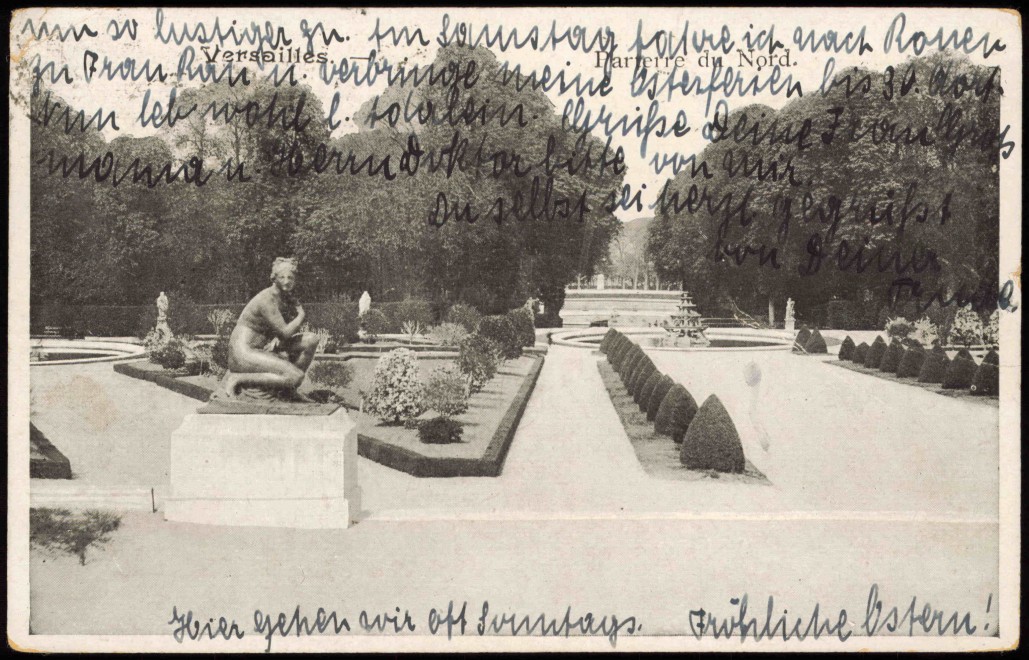 um so lustiger zu. Am Samstag fahre ich nach Rouen
Versailles. — Parterre du Nord.
zu Frau Rau u. verbringe meine Osterferien bis 30. dort.
Nun leb wohl l. Grüße Deine Frau Groß
mama u. Herrn Doktor bitte von mir.
Du selbst sei herzl. gegrüßt
von Deiner
Hier gehen wir oft Sonntags. Fröhliche Ostern!